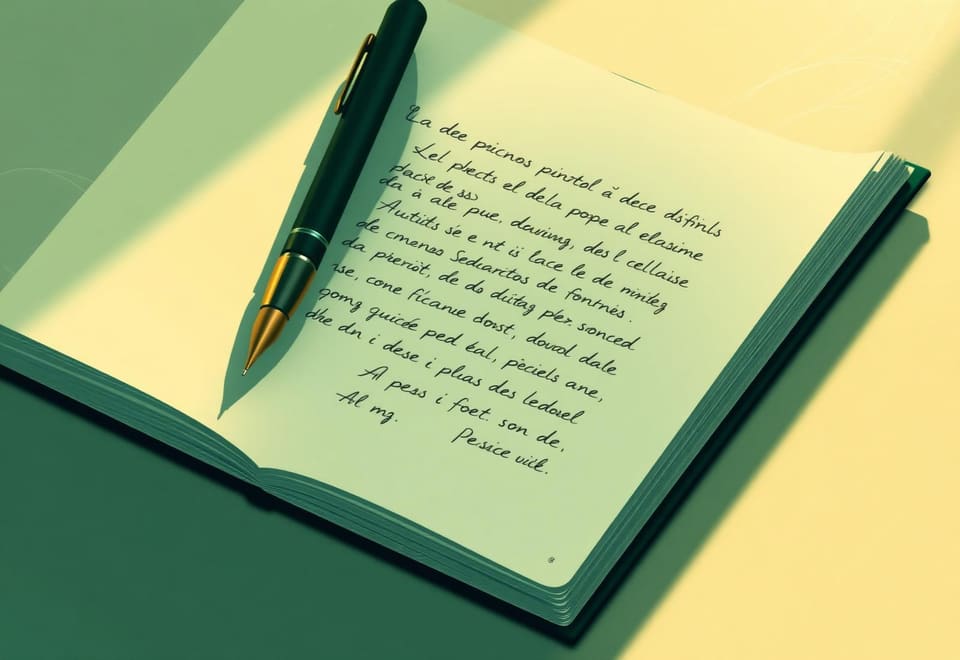 La dee pricnos pintol à dece disfinls
Lel phects el dela pope al elasime
placit de ss
da à ale pue, dawung, des l cellaise
Autids se e nt is lace le de minleg
de cmenas Sedeartos de fontnies.
da preriot, de do dultag per. sonced
ise, cone ficanue dovst, dovol dale
gomg guicée ped kal, pèciels ane,
dhe dn i dese i plias des ledovel
Al pess i foet. son de,
Al mg.
Pesice viile.